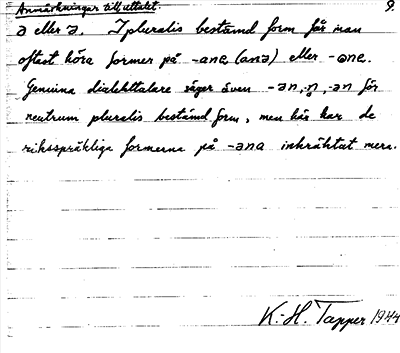 Anmärkningar till uttalet.
9.
ə eller a. I pluralis bestämd form får man
oftast höra former på -ane (anə) eller -əne.
Genuina dialekttalare säger även -ən, -n̥, -an för
neutrum pluralis bestämd form, men här har de
riksspråkliga formerna på -əna inkräktat mera.
K.-H. Tapper 1944